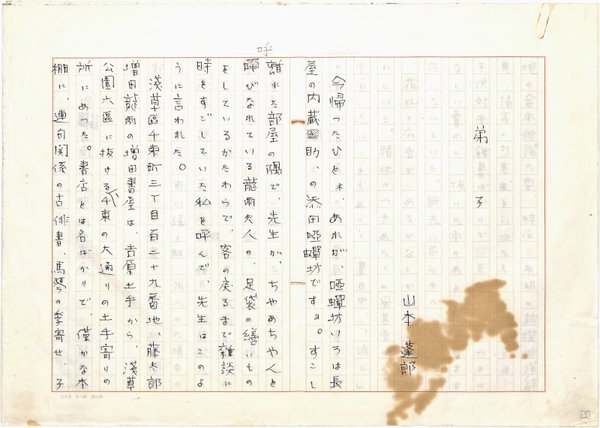 弟子
山本蓬郎
今帰つたひとネ、あれが、唖蟬坊いろは長
屋の内蔵之助、の添田唖蟬坊ですョ。すこし
離れた部屋の隅で、先生が、ちやあちやんと
呼
呼びなれている龍雨夫人の、足袋の繕いもの
をしているかたわらで、客の戻るまで雑談に
時をすごしていた私を呼んで、先生はこのよ
うに言われた。
浅草區千束町三丁目百三十九番地、藤太郎
増田龍雨の増田書屋は、吉原土手から、浅草
公園六區に抜ける千束の大通りの土手寄りの
所にあつた。書店とは名ばかりで、僅かな本
棚に、連句関係の古俳書、馬琴の季寄せ、子